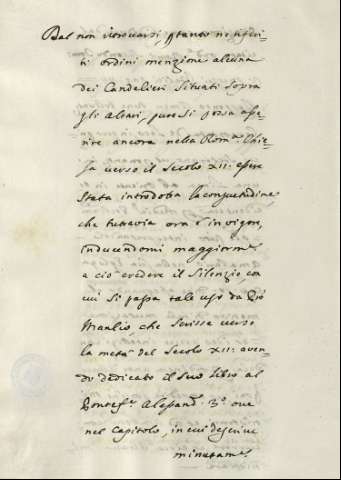 Dal non ritrovarsi ptanto ne' priu-
ti ordini menzione alcuna
dei Candelieri Situati Sopra
gli Altari, pure Si possa asse-
rire ancora nella Rom.ᵃ Chie-
sa verso il Secolo XII: essere
Stata introdotta la consuetudine,
che tuttavia ora è in vigore,
inducendomi maggiorm.ᵉ
a ciò credere il Silenzio, con
cui Si passa tale uso da
Manlio, che Scrisse verso
la metà del Secolo XII: aven-
do dedicato il Suo libro al
Pontef.ᵉ Alessand.º 3.º ove
nel Capitolo, in cui descrive
minutam.ᵉ